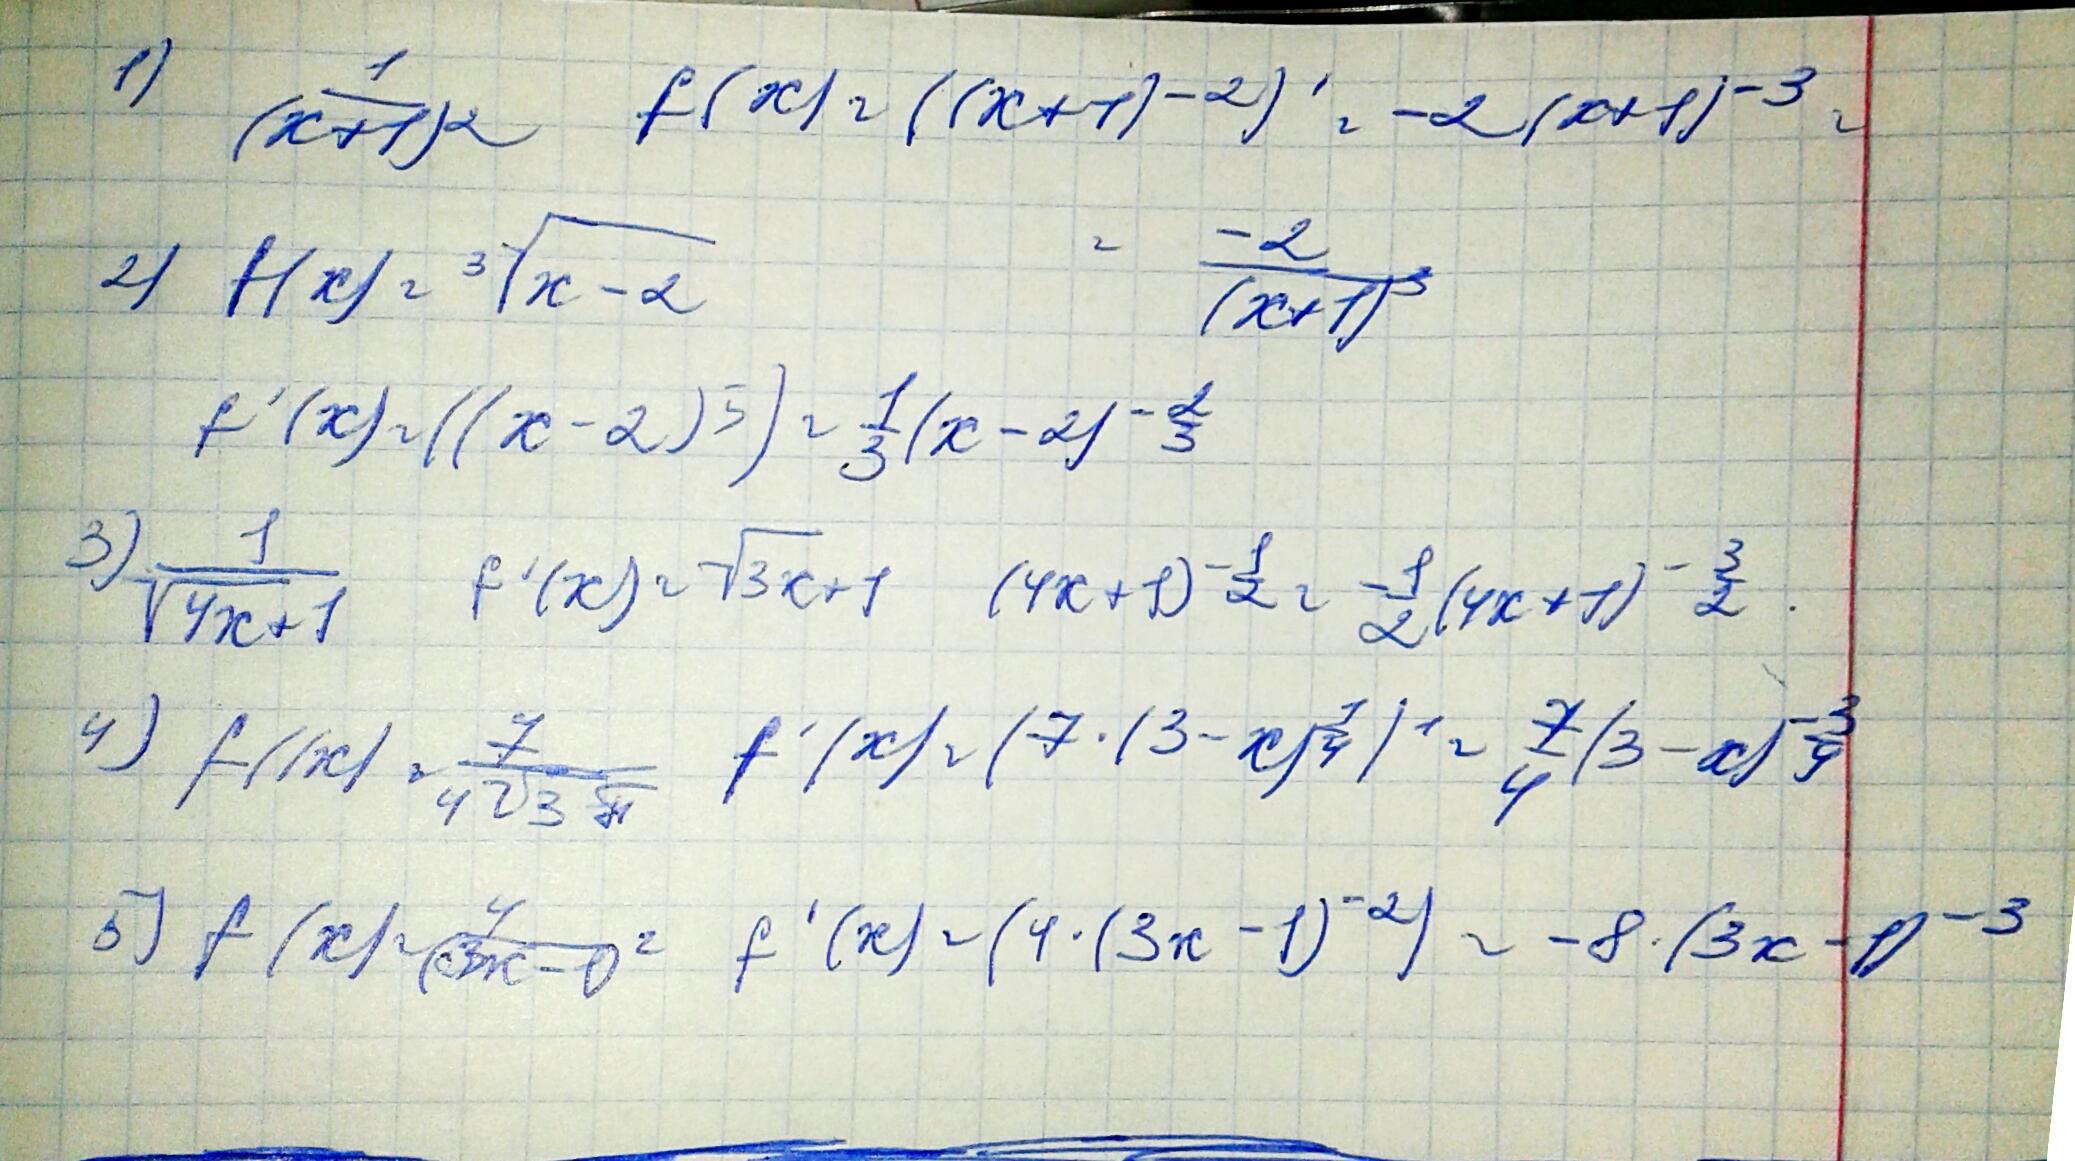 1) 1/(x+1)2 f(x) = ((x+1)-2)' = -2(x+1)^-3 =
= -2/(x+1)^3
2) f(x) = ³√x-2
f'(x) = ((x-2)5) = 1/3 (x-2)^-2/3
3) 1/√4x+1 f'(x) = √3x+1 (4x+1)^-1/2 = -1/2 (4x+1)^-3/2.
4) f(x) = 7/4√3 f'(x) = (7·(3-x)^1/4)' = 7/4 (3-x)^-3/4
5) f(x) = 4/(3x-1)² f'(x) = (4·(3x-1)^-2) = -8·(3x-1)^-3